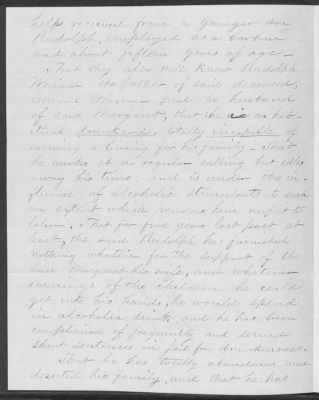 helps received from a younger son
Rudolph, employed as a barber
and about fifteen years of age—
That they also well knew Rudolph
Weiman the father of said deceased,
Weiman and the husband
of said Margaret, that he is an hab-
itual drunkard, totally incapable of
earning a living for his family—That
he works at no regular calling but idles
away his time, and is under the in-
fluence of alcoholic stimulants to such
an extent which renders him unfit to
labor. That for five years last past at
least, the said Rudolph has furnished
nothing whatever for the support of the
said Margaret his wife, and whatever
earnings of the children he could
get into his hands, he would spend
in alcoholic drink, and he has been
complained of frequently and served
short sentences in jail for drunkenness.
That he has totally abandoned and
deserted his family, and that he has